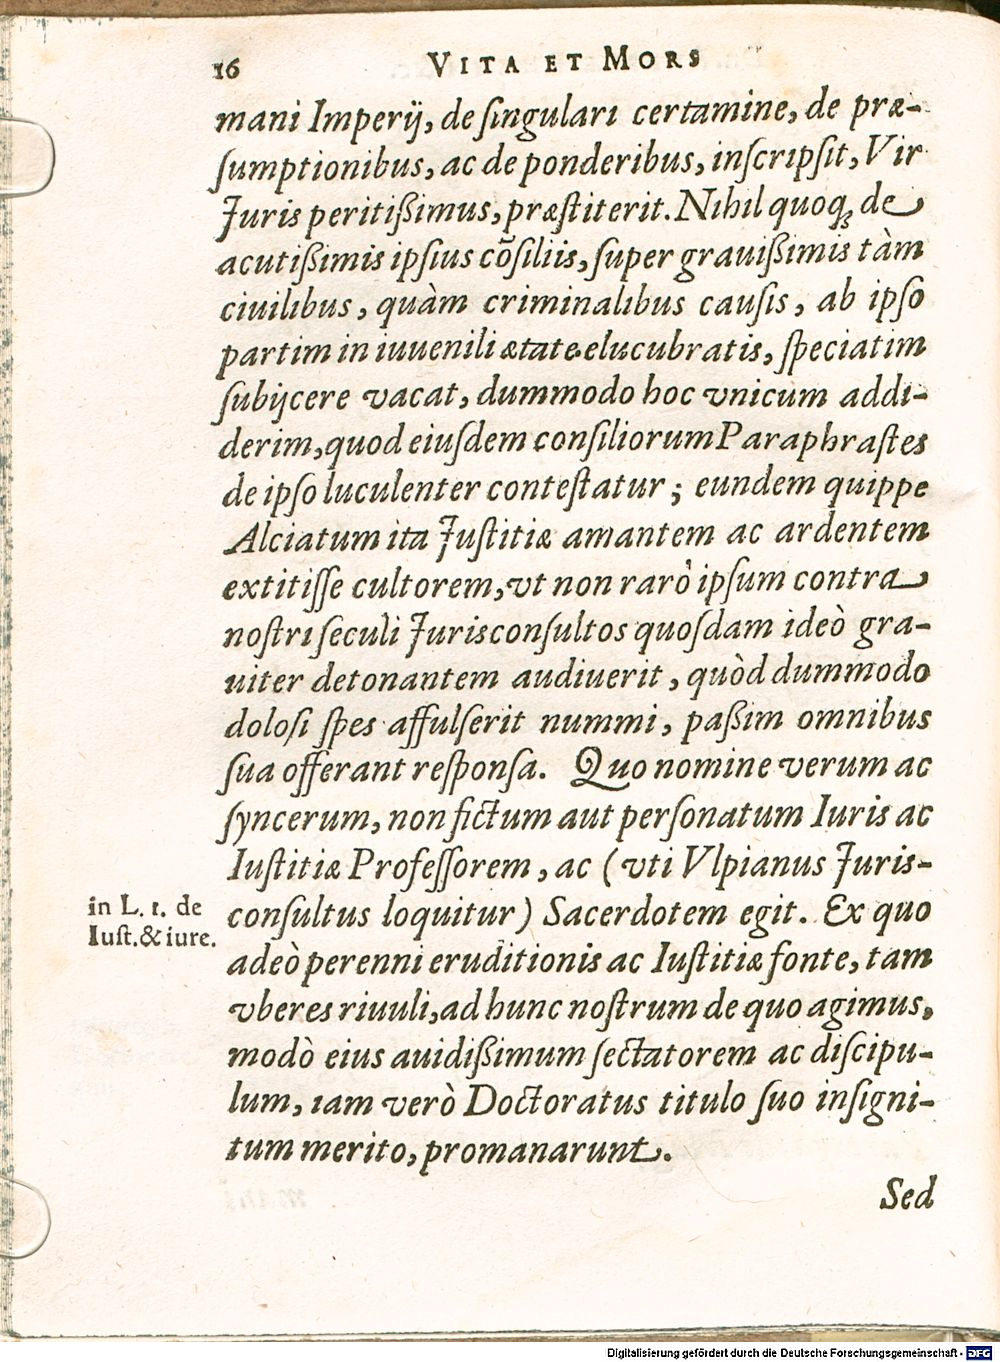 16 VITA ET MORS
mani Imperij, de ſingulari certamine, de præ-
ſumptionibus, ac de ponderibus, inſcripſit, Vir
Juris peritißimus, præſtiterit. Nihil quoq; de
acutißimis ipſius cõſiliis, ſuper grauißimis tàm
ciuilibus, quàm criminalibus cauſis, ab ipſo
partim in iuuenili ætate elucubratis, ſpeciatim
ſubijcere vacat, dummodo hoc vnicum addi-
derim, quod eiuſdem conſiliorum Paraphraſtes
de ipſo luculenter conteſtatur; eundem quippe
Alciatum ita Juſtitiæ amantem ac ardentem
extitiſſe cultorem, vt non rarò ipſum contra
noſtri ſeculi Jurisconſultos quoſdam ideò gra-
uiter detonantem audiuerit, quòd dummodo
doloſi ſpes affulſerit nummi, paßim omnibus
ſua offerant reſponſa. Quo nomine verum ac
ſyncerum, non fictum aut perſonatum Iuris ac
Iuſtitiæ Profeſſorem, ac (vti Vlpianus Juris-
in L. 1. de
Iuſt. & iure.
conſultus loquitur) Sacerdotem egit. Ex quo
adeò perenni eruditionis ac Iuſtitiæ fonte, tam
vberes riuuli, ad hunc noſtrum de quo agimus,
modò eius auidißimum ſectatorem ac diſcipu-
lum, iam verò Doctoratus titulo ſuo inſigni-
tum merito, promanarunt.
Sed
Digitalisierung gefördert durch die Deutsche Forschungsgemeinschaft - DFG